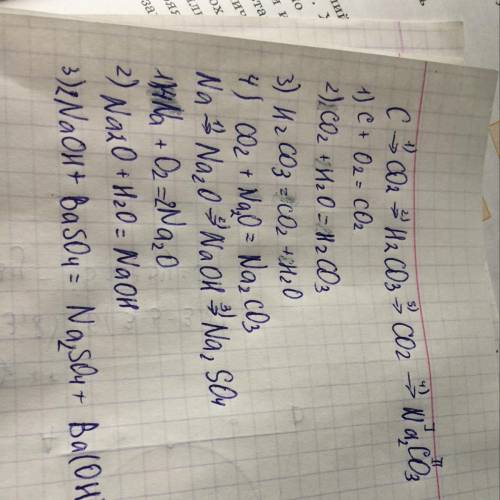 C →1) CO2 →2) H2CO3 →3) CO2 →4) Na2CO3
1) C + O2 = CO2
2) CO2 + H2O = H2CO3
3) H2CO3 = CO2 + H2O
4) CO2 + Na2O = Na2CO3
Na →1) Na2O →2) NaOH →3) Na2SO4
1) 4Na + O2 = 2Na2O
2) Na2O + H2O = NaOH
3) 2NaOH + BaSO4 = Na2SO4 + Ba(OH)